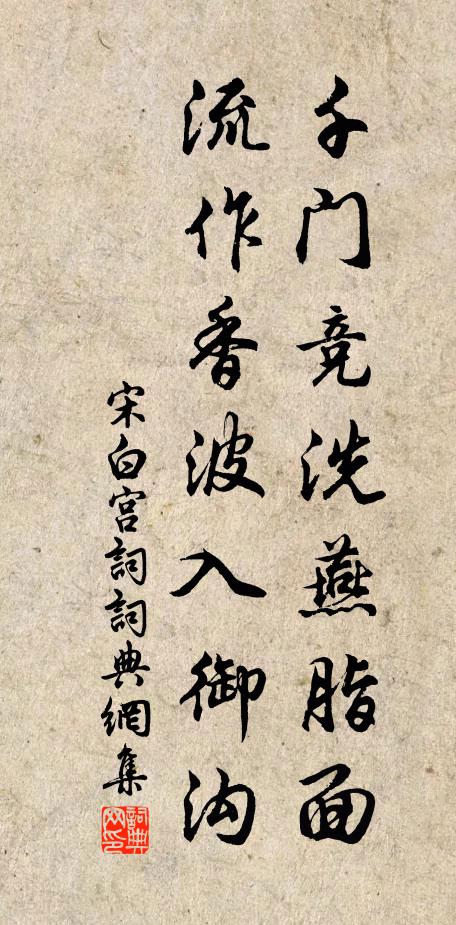 千门竞洗燕脂面
流作香波入御沟
宋白宫詞詞典網集
詞典网印